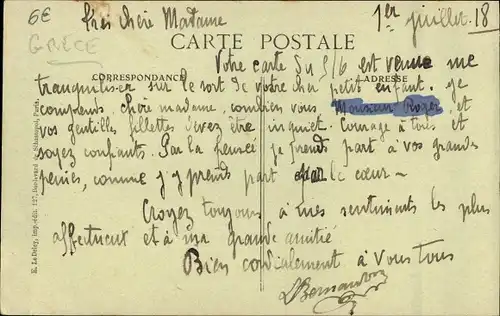 6€
GRECE
Très chère Madame
1er juillet. 18
CARTE POSTALE
CORRESPONDANCE
ADRESSE
Votre carte du 5/6 est venue me
tranquiliser sur le sort de votre cher petit enfant. Je
comprends, chère madame, combien vous Monsieur Roger et
vos gentilles fillettes devez être inquiet. Courage à tous et
soyez confiants. Par la pensée je prends part à vos grandes
peines, comme j'y prends part par le cœur ~
Croyez toujours à mes sentiments les plus
affectueux et à ma grande amitié
Bien cordialement à vous tous
E. Le Deley, imp.-édit. 127, Boulevard de Sébastopol, Paris.